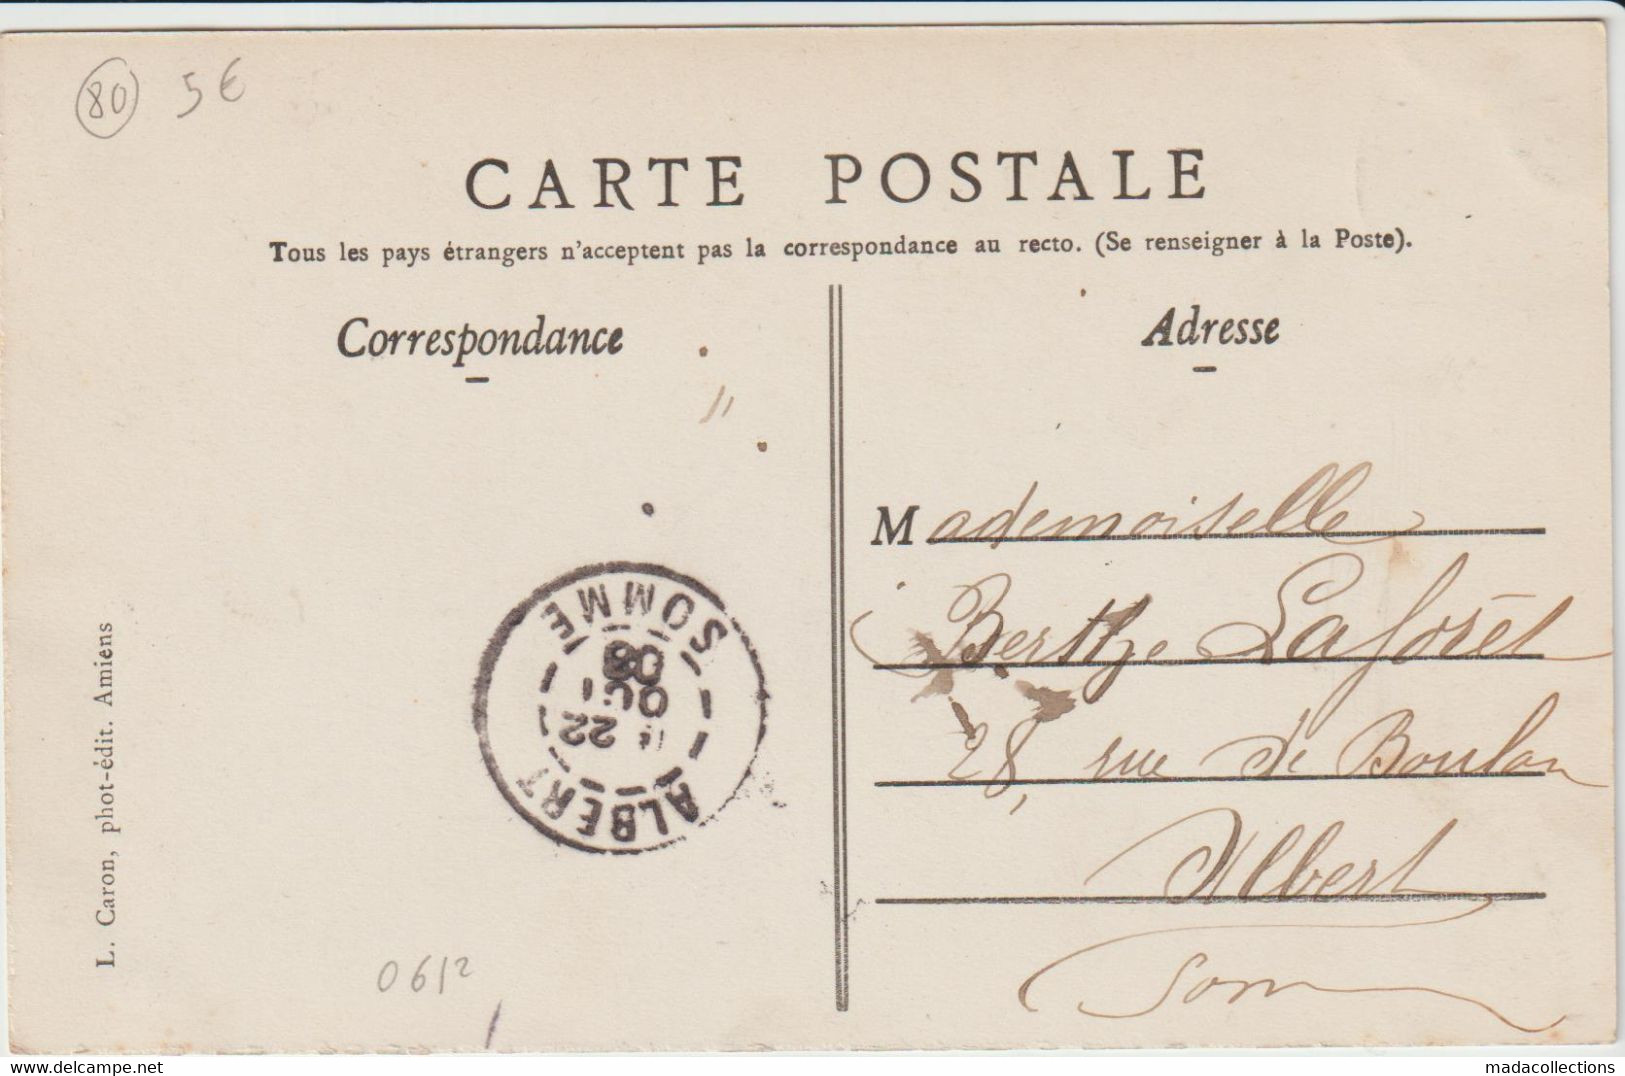 80 5€
CARTE POSTALE
Tous les pays étrangers n'acceptent pas la correspondance au recto. (Se renseigner à la Poste).
Correspondance
Adresse
Mademoiselle
Berthe Laforêt
28, rue de Boulan
Albert
Som
ALBERT
22
OCT
08
SOMME
L. Caron, phot-édit. Amiens
0612
madacollections